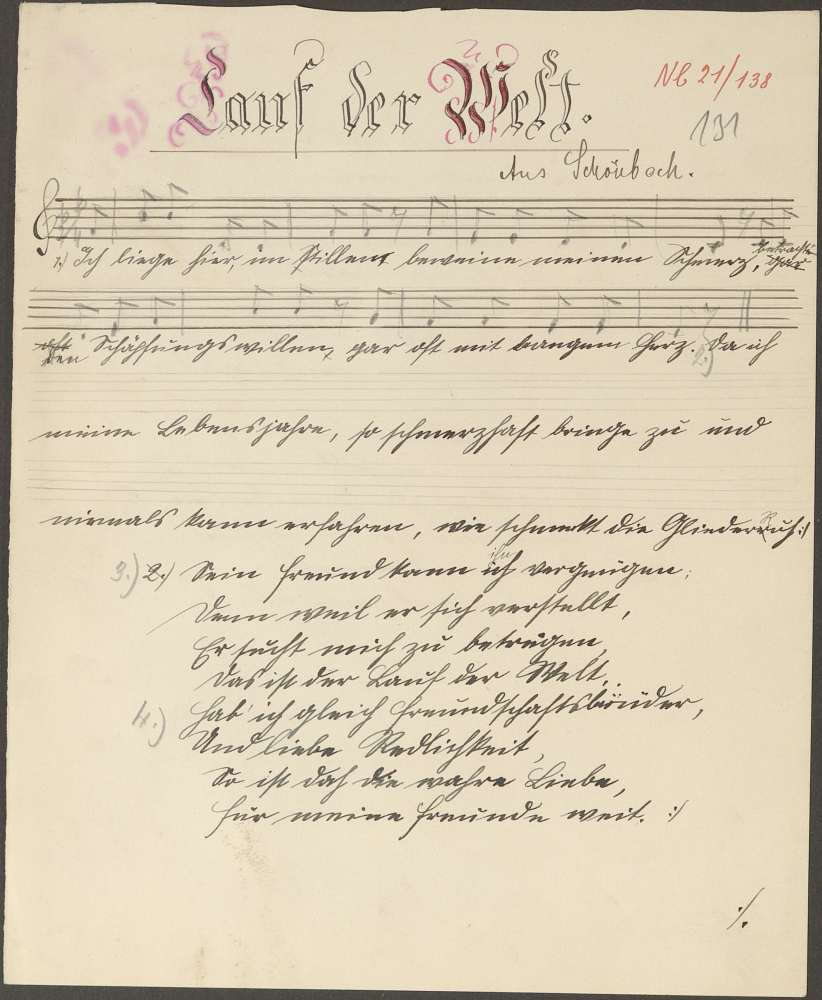 Lauf der Welt.
Nb 21/138
131
Aus Schönbach.
1.) Ich liege hier, im Stillen beweine meinen Schmerz, gar betrachte
oft den Schöpfungswillen, gar oft mit bangem Herz. 2.) Da ich
meine Lebensjahre, so schmerzhaft bringe zu und
niemals kann erfahren, wie schmekt die Gliederruh :/
3.) 2.) Sein Freund kann ich ihn vergnügen;
Denn weil er sich verstellt,
Er sucht mich zu betrügen,
Das ist der Lauf der Welt.
4.) Hab' ich gleich Freundschaftsbrüder,
Und liebe Redlichkeit,
So ist daß die wahre Liebe,
Für meine Freunde weit. :/
./.